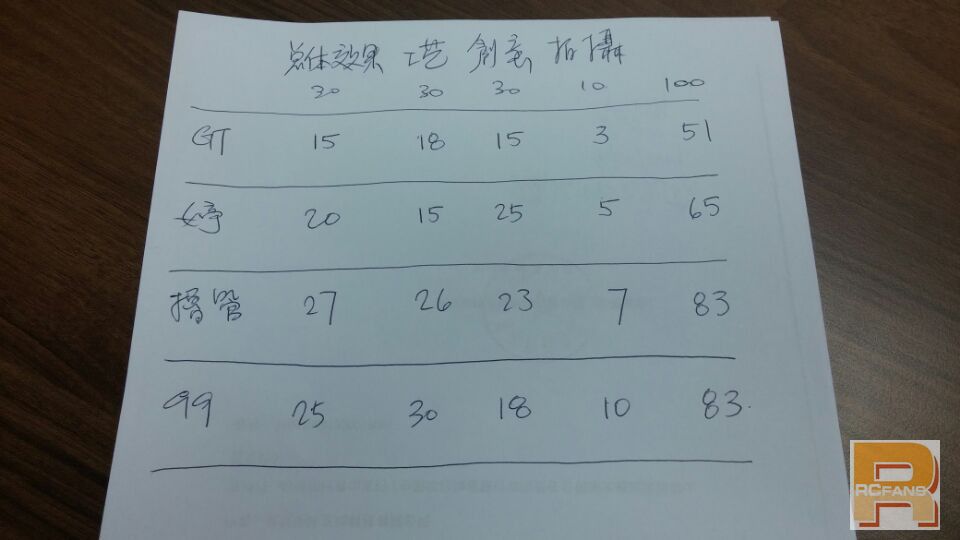 总体效果 工艺 創意 拍攝
30 30 30 10 100
GT 15 18 15 3 51
婷 20 15 25 5 65
撸管 27 26 23 7 83
99 25 30 18 10 83.
RCFANS